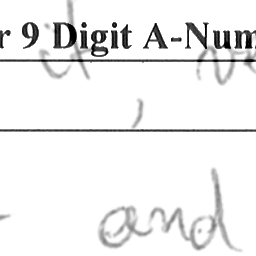 r 9 Digit A-Num
it,
and